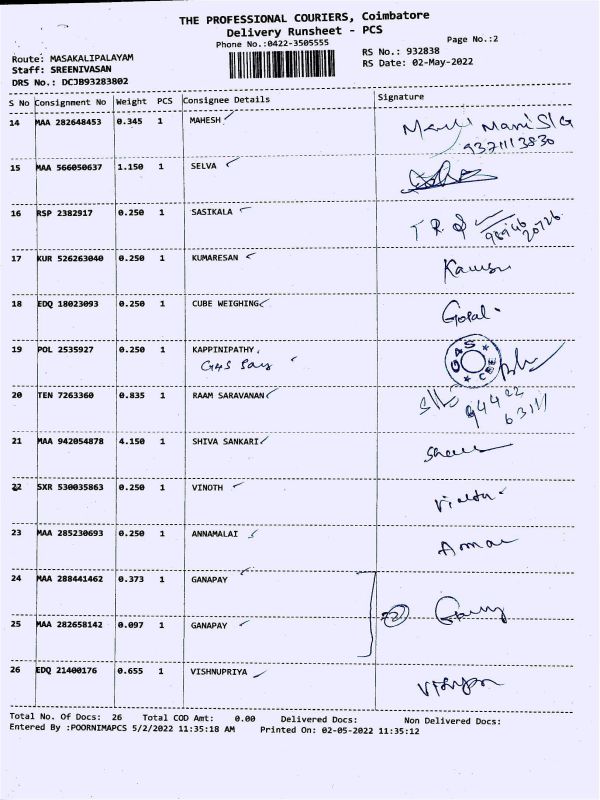 THE PROFESSIONAL COURIERS, Coimbatore
Delivery Runsheet - PCS
Phone No.:0422-3505555
Page No.:2
Route: MASAKALIPALAYAM
RS No.: 932838
Staff: SREENIVASAN
RS Date: 02-May-2022
DRS No.: DCJB93283802
S No Consignment No Weight PCS Consignee Details Signature
14 MAA 282648453 0.345 1 MAHESH
15 MAA 566050637 1.150 1 SELVA
16 RSP 2382917 0.250 1 SASIKALA
17 KUR 526263040 0.250 1 KUMARESAN
18 EDQ 18023093 0.250 1 CUBE WEIGHING
Gopal
19 POL 2535927 0.250 1 KAPPINIPATHY
20 TEN 7263360 0.835 1 RAAM SARAVANAN
94422
63111
21 MAA 942054878 4.150 1 SHIVA SANKARI
22 SXR 530035863 0.250 1 VINOTH
23 MAA 285230693 0.250 1 ANNAMALAI
24 MAA 288441462 0.373 1 GANAPAY
25 MAA 282658142 0.097 1 GANAPAY
26 EDQ 21400176 0.655 1 VISHNUPRIYA
Total No. Of Docs: 26 Total COD Amt: 0.00 Delivered Docs: Non Delivered Docs:
Entered By :POORNIMAPCS 5/2/2022 11:35:18 AM Printed On: 02-05-2022 11:35:12